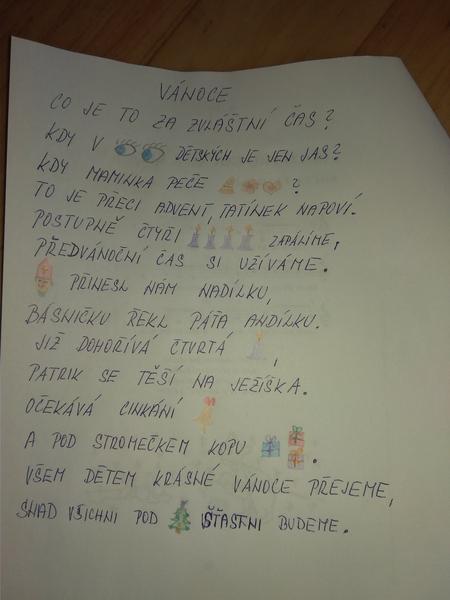 VÁNOCE
CO JE TO ZA ZVLÁŠTNÍ ČAS?
KDY V DĚTSKÝCH JE JEN JAS?
KDY MAMINKA PEČE ?
TO JE PŘECI ADVENT, TATÍNEK NAPOVÍ.
POSTUPNĚ ČTYŘI ZAPÁLÍME,
PŘEDVÁNOČNÍ ČAS SI UŽÍVÁME.
PŘINESL NÁM NADÍLKU,
BÁSNIČKU ŘEKL PÁŤA ANDÍLKU.
JIŽ DOHOŘÍVÁ ČTVRTÁ ,
PATRIK SE TĚŠÍ NA JEŽÍŠKA.
OČEKÁVÁ CINKÁNÍ
A POD STROMEČKEM KOPU .
VŠEM DĚTEM KRÁSNÉ VÁNOCE PŘEJEME,
SNAD VŠICHNI POD ŠŤASTNI BUDEME.